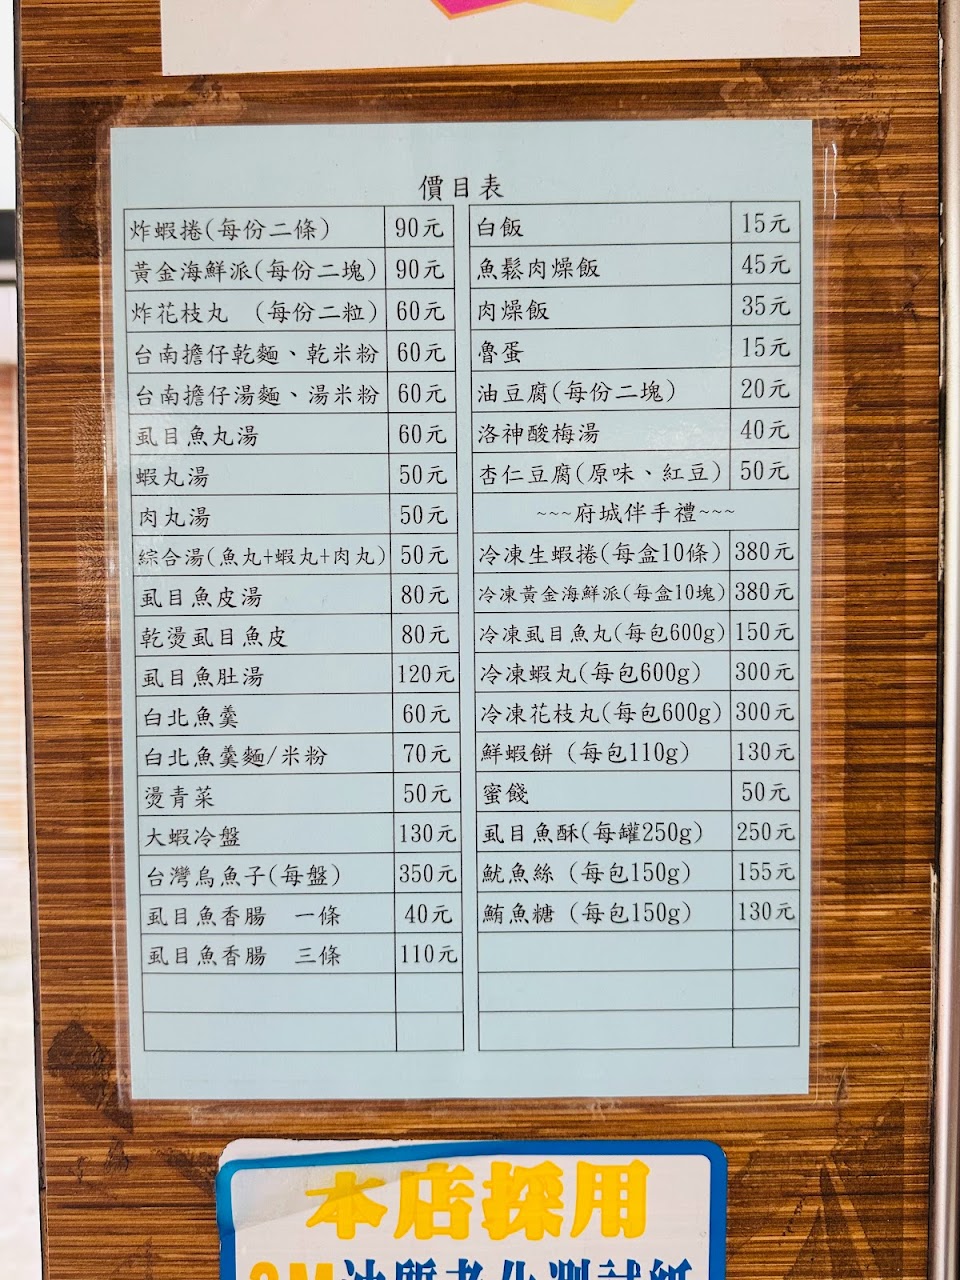 價目表
炸蝦捲(每份二條) 90元
黃金海鮮派(每份二塊) 90元
炸花枝丸 (每份二粒) 60元
台南擔仔乾麵、乾米粉 60元
台南擔仔湯麵、湯米粉 60元
虱目魚丸湯 60元
蝦丸湯 50元
肉丸湯 50元
綜合湯(魚丸+蝦丸+肉丸) 50元
虱目魚皮湯 80元
乾燙虱目魚皮 80元
虱目魚肚湯 120元
白北魚羹 60元
白北魚羹麵/米粉 70元
燙青菜 50元
大蝦冷盤 130元
台灣烏魚子(每盤) 350元
虱目魚香腸 一條 40元
虱目魚香腸 三條 110元
白飯 15元
魚鬆肉燥飯 45元
肉燥飯 35元
魯蛋 15元
油豆腐(每份二塊) 20元
洛神酸梅湯 40元
杏仁豆腐(原味、紅豆) 50元
~~~府城伴手禮~~~
冷凍生蝦捲(每盒10條) 380元
冷凍黃金海鮮派(每盒10塊) 380元
冷凍虱目魚丸(每包600g) 150元
冷凍蝦丸(每包600g) 300元
冷凍花枝丸(每包600g) 300元
鮮蝦餅 (每包110g) 130元
蜜餞 50元
虱目魚酥(每罐250g) 250元
魷魚絲 (每包150g) 155元
鮪魚糖 (每包150g) 130元
本店採用
3M油質老化測試紙